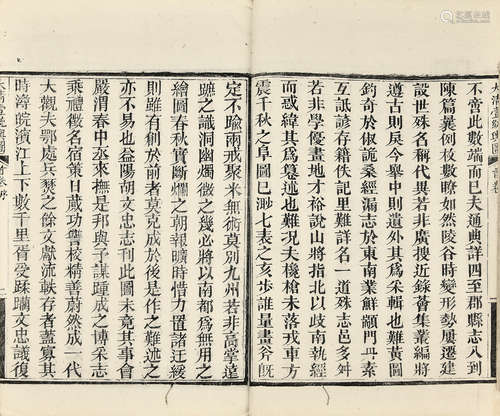 不啻此數端而已夫通典詳四至郡縣志八到
陳篇異例枚數瞭如然陵谷時變形勢屢遷建
設世殊名稱代異若非廣搜近錄薈集叢編將
遵古則戾今舉中則遺外其為采輯也難黃圖
鈎奇於俶詭桑經漏志於東南業鮮顓門丹素
互詆諺存積佚記里難詳名一道殊志邑多舛
若非學優畫地才裕說山將指北以歧南執競
而惑緯其為纂述也難況夫欃槍未落戎車方
震千秋之阜圖已渺七表之亥步誰量畫沓旣
定不踰兩戒聚米無術莫別九州若非高掌遠
蹠之識洞幽燭微之幾必將以南都為無用之
繪圖春秋實斷爛之朝報曠時惜力置諸迂緩
則雖有創於前者莫克成於後是作之難述之
亦不易也益陽胡文忠志刊此圖未竟其事會
嚴渭春中丞來撫是邦與予謀踵成之博采志
乘禮徵名宿策日蕆功讐校精善蔚然成一代
大觀夫鄂處兵燹之餘文獻流軼存者蓋寡其
時濟皖濱江上下數千里胥受蹂躪文忠議復